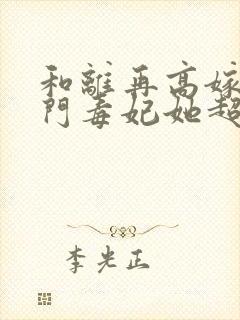 和離再高嫁
門毒妃她超
李光正